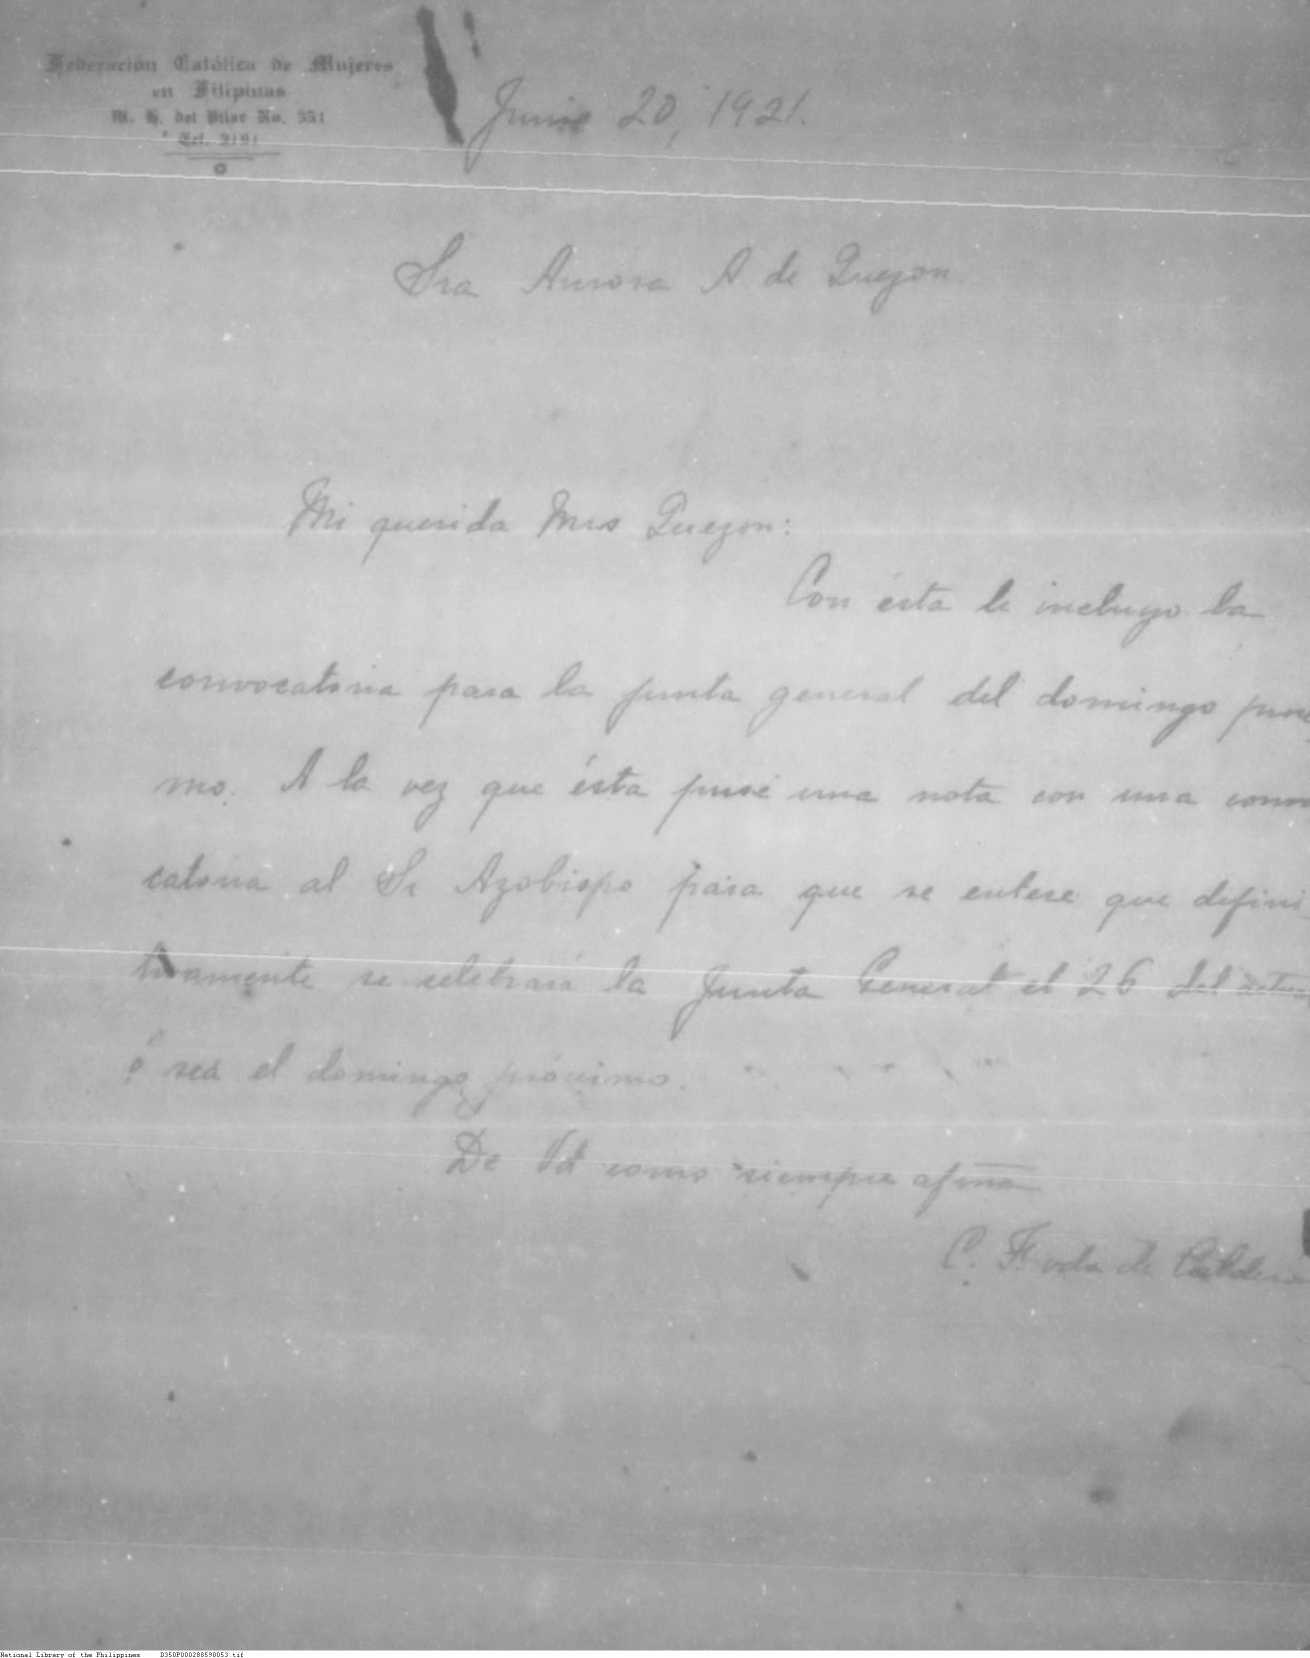 Federación Católica de Mujeres
en Filipinas
M. H. del Pilar No. 551
Tel. 2191
Junio 20, 1921.
Sra Aurora A de Quezon
Mi querida Mrs Quezon:
Con ésta le incluyo la
convocatoria para la junta general del domingo
mo. A la vez que ésta puse una nota con una convo
catoria al Sr Azobispo para que se entere que defini
tivamente se celebrará la Junta General el 26 del actual
ó sea el domingo próximo.
De Vd como siempre afma
C. F. vda de Caldero
National Library of the Philippines D350P000288598053.tif